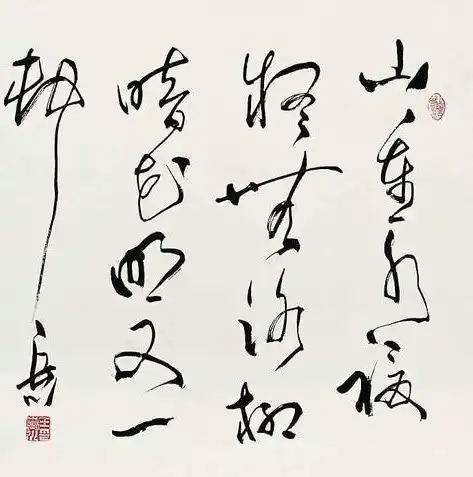 山重水複
疑無路柳
暗花明又一
村 岳